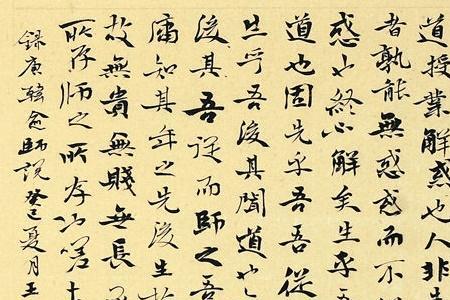 道授業解惑也人非生
者孰能無惑惑而不
惑也終不解矣生乎
道也固先乎吾吾從
生乎吾後其聞道也
後其吾從而師之吾
庸知其年之先後生於
故無貴無賤無長無
所存師之所存也嗟
錄唐韓愈師說癸巳夏月王